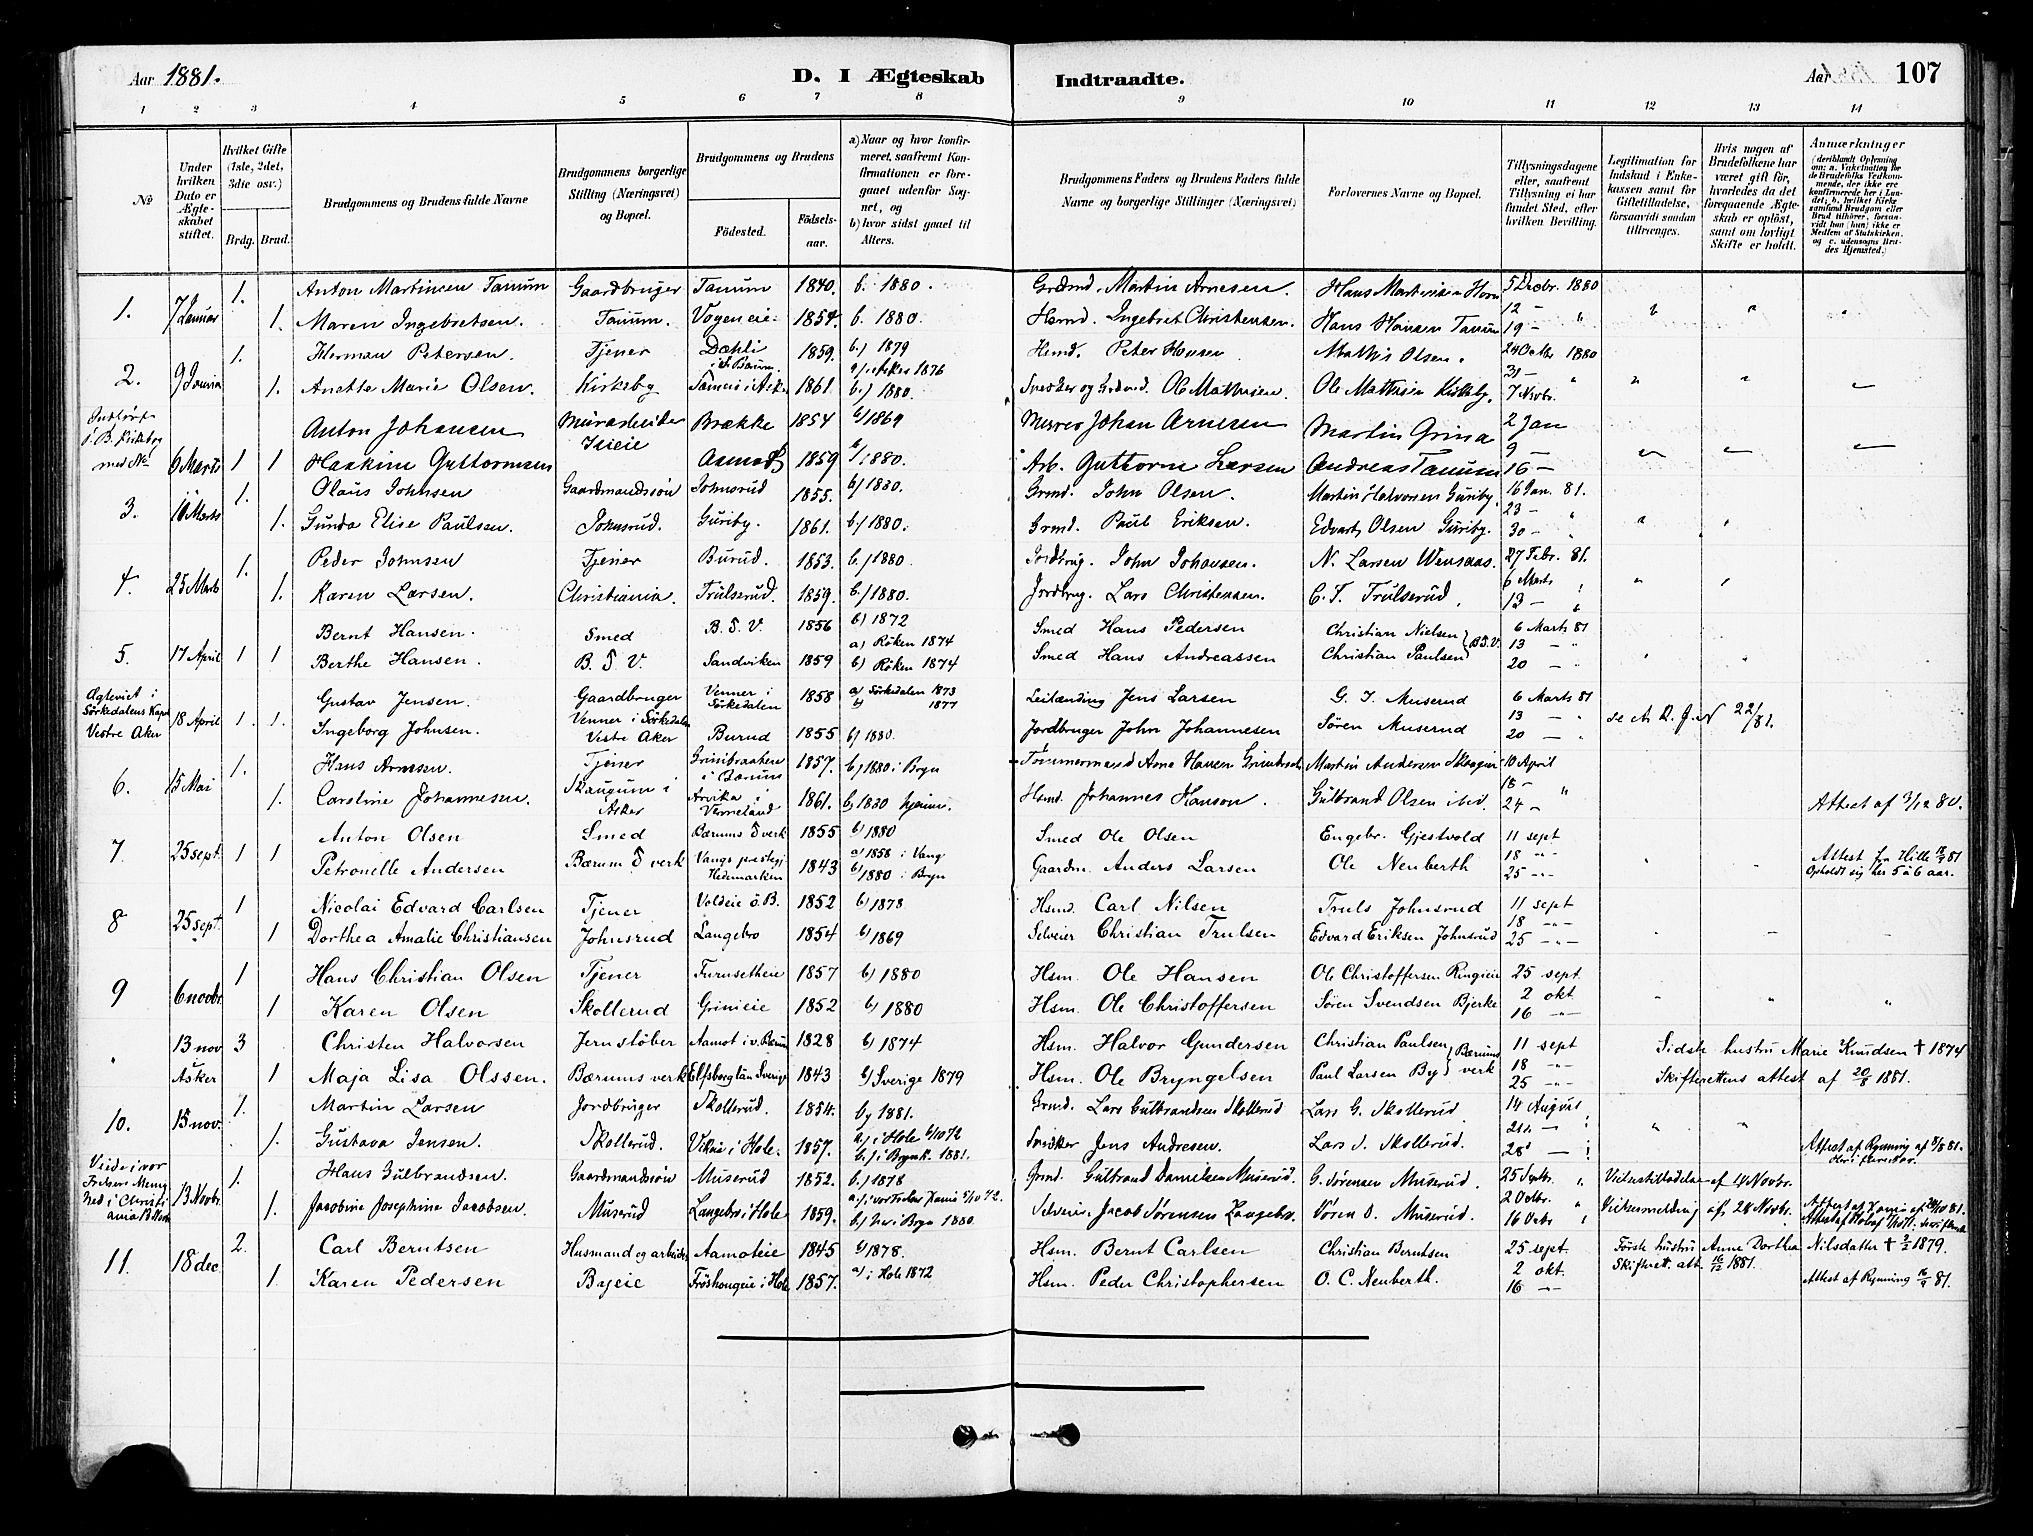 Aar 1881. D. I Ægteskab Indtraadte. Aar 107
1 2 3 4 5 6 7 8 9 10 11 12 13 14
№
Under hvilken Dato er Ægteskabet stiftet.
Hvilket Gifte (1ste, 2det, 3die osv.)
Brdg. Brud.
Brudgommens og Brudens fulde Navne
Brudgommens borgerlige Stilling (Næringsvei) og Bopæl.
Brudgommens og Brudens
Födested. Födselsaar.
a) Naar og hvor konfirmeret, saafremt Konfirmationen er foregaaet udenfor Sognet, og
b) hvor sidst gaaet til Alters.
Brudgommens Faders og Brudens Faders fulde Navne og borgerlige Stillinger (Næringsvei)
Forlovernes Navne og Bopæl.
Tillysningsdagene eller, saafremt Tillysning ei har fundet Sted, efter hvilken Bevilling.
Legitimation for Indskud i Enkekassen samt for Giftetilladelse, forsaavidt saadan tiltrænges.
Hvis nogen af Brudefolkene har været gift för, hvorledes da det foregaaende Ægteskab er oplöst, samt om lovligt Skifte er holdt.
Anmærkninger
1. 7 Januar 1. Anton Martinsen Tanum Gaardbruger Tanum 1840. b. 1880. Grdmd. Martin Arnesen. Hans Martinsen Horn 5 Decbr. 1880
1. Maren Ingebretsen. Tanum. Vøgeneie 1854. b. 1880. Hsmd. Ingebret Christensen. Hans Hansen Tanum 12 – 19 – "
2. 9 Januar 1. Herman Petersen. Tjener Dæhli i Bærum. 1859. b.) 1879 Hsmd. Peter Hansen Mathis Olsen. 24 Octbr 1880
1. Anette Marie Olsen. Kirkeby 1861. a) i Asker 1876 b.) 1880. Ole Mathisen. Ole Mathisen Kirkeby. 31 – 7 Novbr.
6 Marts 1 Anton Johansen Murarbeider Brække 1854 b) 1869 Murer Johan Arnesen Martin Grina 2 Jan
1 Haakine Guttormsen 1859 b) 1880. Arb. Guttorm Larsen Andreas Tanum 9 – 16 –
3. 10 Marts 1. Olaus Johnsen Gaardmandssøn Johnsrud 1855. b) 1880. Grmd. John Olsen. Martin Halvorsen Guriby. 16 Jan. 81.
1. Gunda Elise Paulssen. Johnsrud. Guriby. 1861. b) 1880. Grmd. Paul Eriksen. Edvart Olsen Guriby. 23 – 30 –
4. 25 Marts 1. Peder Johnsen Tjener Burud. 1853. b.) 1880. Jordbrug. John Johansen. N. Larsen Wensaas. 27 Febr. 81.
1. Karen Larsen. Christiania. Trulserud. 1859. b.) 1880. Jordbrug. Lars Christensen. C. T. Trulserud. 6 Marts 13 –
5. 17 April 1 Bernt Hansen. Smed B. V. 1856 b) 1872 Smed Hans Pedersen Christian Nielsen 6 Marts 81
1 Berthe Hansen. B. V. Sandviken 1859 a) Røken 1874 b) Røken 1874 Smed Hans Andreassen Christian Paulsen 13 – 20 –
Ægteviet i Sørkedalens Kapel Vestre Aker 18 April 1. Gustav Jensen. Gaardbruger Venner i Sørkedalen 1858 a) Sørkedalen 1873 b) 1877 Leilænding Jens Larsen G. J. Muserud 6 Marts 81
1. Ingeborg Johnsen. Venner i Sørkedalen Vestre Aker Burud 1855 b) 1880. Jordbruger John Johannesen Søren Muserud 13 – 20 – se A. D. J. N 22/81.
6. 15 Mai 1. Hans Arnesen. Tjener Grinibraaten i Bærum 1857. b) 1880 i Bryn Tømmermand Arne Hansen Martin Andersen 10 April
1. Caroline Johannesen. Skaugum i Asker Arvika i Vermeland 1861. b) 1880 hjem. Hsmd. Johannes Hanson. Gulbrand Olsen 18 – 24 – Attest af 3/12 80.
7. 25 sept. 1 Anton Olsen Smed Bærums verk 1855 b) 1880 Smed Ole Olsen Engebr. Gjestvold 11 sept
1 Petronelle Andersen Bærum verk Vangs prestegj Hedemarken 1843 a) 1858 i Vang b) 1880 i Bryn Gaardm. Anders Larsen Ole Neuberth 18 25 Attest fra Hille 81 Opholdt sig her 5 à 6 aar.
8 25 sept. 1 Nicolai Edvard Carlsen Tjener Voldeie ö. B. 1852 b) 1878. Hsmd. Carl Nilsen Truls Johnsrud 11 sept
1 Dorthea Amalie Christiansen Johnsrud Langebro 1854 b) 1869 Selveier Christian Trulsen Edvard Eriksen Johnsrud 18 25
9 6 novbr. 1 Hans Christian Olsen Tjener Furusetheie 1857 b) 1880 Hsm. Ole Hansen Ole Christoffersen Ringieie 25 sept.
1 Karen Olsen Skollerud Grinieie 1852 b) 1880 Hsm. Ole Christoffersen Søren Svendsen Bjerke 2 okt 16
13 nov Asker 3 Christen Halvorsen Jernstøber Aamot i v. Bærum 1828 b) 1874 Hsm. Halvor Gundersen Christian Paulsen Bærums verk 11 sept Sidste hustru Marie Knudsen † 1874
1 Maja Lisa Olssen. Bærums verk Elfsborg län Sverige 1843 b) Sverige 1879 Hsm. Ole Bryngelsen Paul Larsen By 18 25 Skifterettens attest af 20/8 1881.
10. 15 nov. 1. Martin Larsen Jordbruger Skollerud. 1854. b) 1881. Grmd. Lars Gulbrandsen Skollerud Lars G. Skollerud 14 August
1. Gustava Jensen. Skollerud. Vikeie i Hole. 1857. a.) i Hole 6/10 72 b.) i Bryn K. 1881. Jens Andresen. Lars J. Skollerud. 21 – 28 – Attest af Rynning af 3/8 81.
13 Novbr. 1. Hans Gulbrandsen. Gaardmandssøn Muserud 1852. b.) 1878 Grmd. Gulbrand Danielsen Muserud. G. Sørensen Muserud. 25 Septbr. af 14 Novbr.
1. Jacobine Josephine Jacobsen. Muserud Langebro i Hole 1859. b.) her i Bryn 1880. Selveier Jacob Sørensen Langebro. Søren O. Muserud. 2 Octbr. 16 Octbr Vielsesmelding af 28 Novbr.
11. 18 dec. 2. Carl Berntsen Husmand og arbeider Aamoteie 1845 b) 1878. Hsm. Bernt Carlsen Christian Berntsen 25 sept. Første hustru Anne Dorthea Nilsdatter † 2/2 1879.
1. Karen Pedersen Byeie Frøshougeie i Hole 1857. a) i Hole 1872 Hsm. Peder Christophersen O. C. Neuberth. 2 okt. 16 Skifterett. att. 16/12 1881. Attest af Rynning 16/9 81.